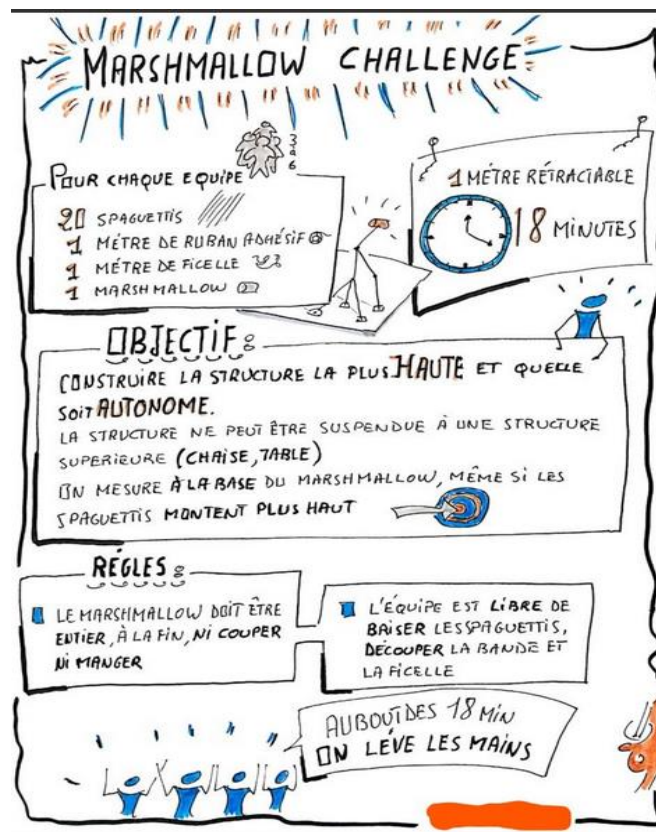 MARSHMALLOW CHALLENGE
POUR CHAQUE EQUIPE
3 à 6
20 SPAGUETTIS
1 MÉTRE DE RUBAN ADHÉSIF
1 MÉTRE DE FICELLE
1 MARSHMALLOW
1 MÉTRE RÉTRACTABLE
18 MINUTES
OBJECTIF:
CONSTRUIRE LA STRUCTURE LA PLUS HAUTE ET QUELLE
SOIT AUTONOME.
LA STRUCTURE NE PEUT ÊTRE SUSPENDUE À UNE STRUCTURE
SUPERIEURE (CHAISE, TABLE)
ON MESURE À LA BASE DU MARSHMALLOW, MÊME SI LES
SPAGUETTIS MONTENT PLUS HAUT
RÉGLES:
LE MARSHMALLOW DOIT ÊTRE
ENTIER, À LA FIN, NI COUPER
NI MANGER
L'ÉQUIPE EST LIBRE DE
BRISER LES SPAGUETTIS,
DÉCOUPER LA BANDE ET
LA FICELLE
AU BOUT DES 18 MIN
ON LÉVE LES MAINS